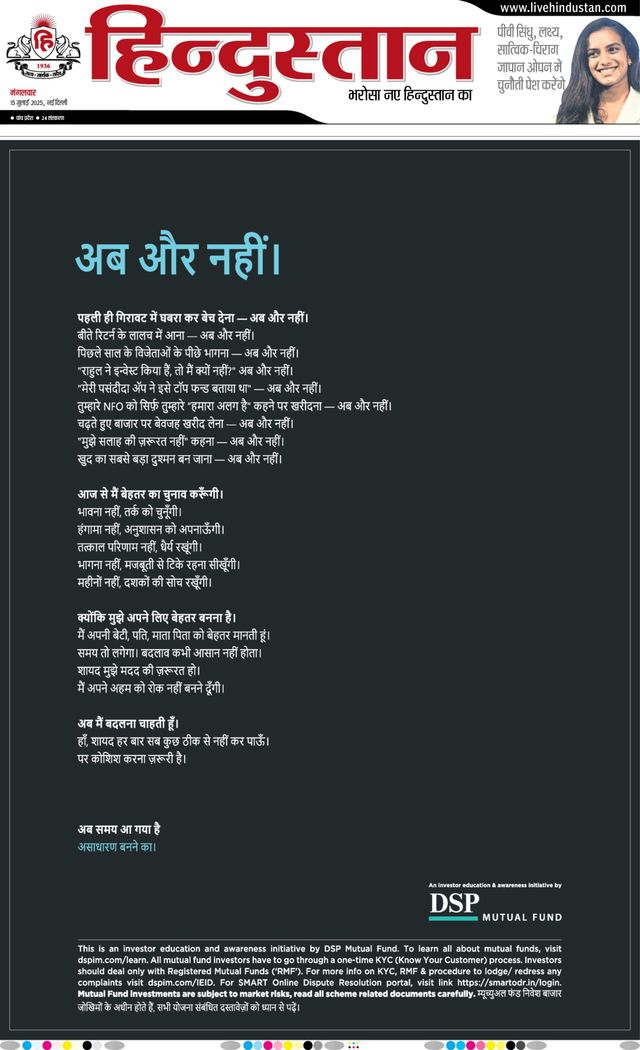 www.livehindustan.com
हिन्दुस्तान
भरोसा नए हिन्दुस्तान का
हि
1936
मंगलवार
15 जुलाई 2025, नई दिल्ली
● पांच प्रदेश ● 24 संस्करण
पीवी सिंधु, लक्ष्य,
सात्विक-चिराग
जापान ओपन में
चुनौती पेश करेंगे
अब और नहीं।
पहली ही गिरावट में घबरा कर बेच देना — अब और नहीं।
बीते रिटर्न के लालच में आना — अब और नहीं।
पिछले साल के विजेताओं के पीछे भागना — अब और नहीं।
"राहुल ने इन्वेस्ट किया हैं, तो मैं क्यों नहीं?" अब और नहीं।
"मेरी पसंदीदा ॲप ने इसे टॉप फन्ड बताया था" — अब और नहीं।
तुम्हारे NFO को सिर्फ़ तुम्हारे "हमारा अलग है" कहने पर खरीदना — अब और नहीं।
चढ़ते हुए बाजार पर बेवजह खरीद लेना — अब और नहीं।
"मुझे सलाह की ज़रूरत नहीं" कहना — अब और नहीं।
खुद का सबसे बड़ा दुश्मन बन जाना — अब और नहीं।
आज से मैं बेहतर का चुनाव करूँगी।
भावना नहीं, तर्क को चुनूँगी।
हंगामा नहीं, अनुशासन को अपनाऊँगी।
तत्काल परिणाम नहीं, धैर्य रखूंगी।
भागना नहीं, मजबूती से टिके रहना सीखूँगी।
महीनों नहीं, दशकों की सोच रखूँगी।
क्योंकि मुझे अपने लिए बेहतर बनना है।
मैं अपनी बेटी, पति, माता पिता को बेहतर मानती हूं।
समय तो लगेगा। बदलाव कभी आसान नहीं होता।
शायद मुझे मदद की ज़रूरत हो।
मैं अपने अहम को रोक नहीं बनने दूँगी।
अब मैं बदलना चाहती हूँ।
हाँ, शायद हर बार सब कुछ ठीक से नहीं कर पाऊँ।
पर कोशिश करना ज़रूरी है।
अब समय आ गया है
असाधारण बनने का।
An investor education & awareness initiative by
DSP
MUTUAL FUND
This is an investor education and awareness initiative by DSP Mutual Fund. To learn all about mutual funds, visit
dspim.com/learn. All mutual fund investors have to go through a one-time KYC (Know Your Customer) process. Investors
should deal only with Registered Mutual Funds ('RMF'). For more info on KYC, RMF & procedure to lodge/ redress any
complaints visit dspim.com/IEID. For SMART Online Dispute Resolution portal, visit link https://smartodr.in/login.
Mutual Fund investments are subject to market risks, read all scheme related documents carefully. म्यूच्युअल फंड निवेश बाजार
जोखिमों के अधीन होते हैं, सभी योजना संबंधित दस्तावेज़ों को ध्यान से पढ़ें।